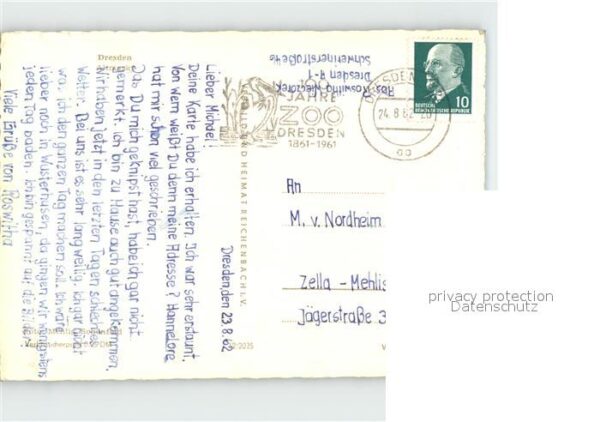 Dresden
Dresden, den 23.8.62
Lieber Michael!
Deine Karte habe ich erhalten. Ich war sehr erstaunt.
Von wem weißt Du denn meine Adresse? Hannelore
hat mir schon viel geschrieben.
Das Du mich geknipst hast, habe ich gar nicht
gemerkt. Ich bin zu Hause auch gut angekommen.
Wir haben jetzt in den letzten Tagen schlechtes
Wetter. Bei uns ist es sehr langweilig. Ich weiß nicht
was ich den ganzen Tag machen soll. Ich wäre
lieber noch in Wusterhusen, da gingen wir wenigstens
jeden Tag baden. Ich bin gespannt auf die Bilder
Viele Grüße von Roswitha
BILD UND HEIMAT REICHENBACH I. V.
Roswitha
Dresden A-1
Schwerinerstraße 46
100
JAHRE
ZOO
DRESDEN
1861-1961
DRESDEN
24.8.62
DEUTSCHE
DEMOKRATISCHE REPUBLIK
10
An
M. v. Nordheim
Zella - Mehlis
Jägerstraße 3
privacy protection
Datenschutz